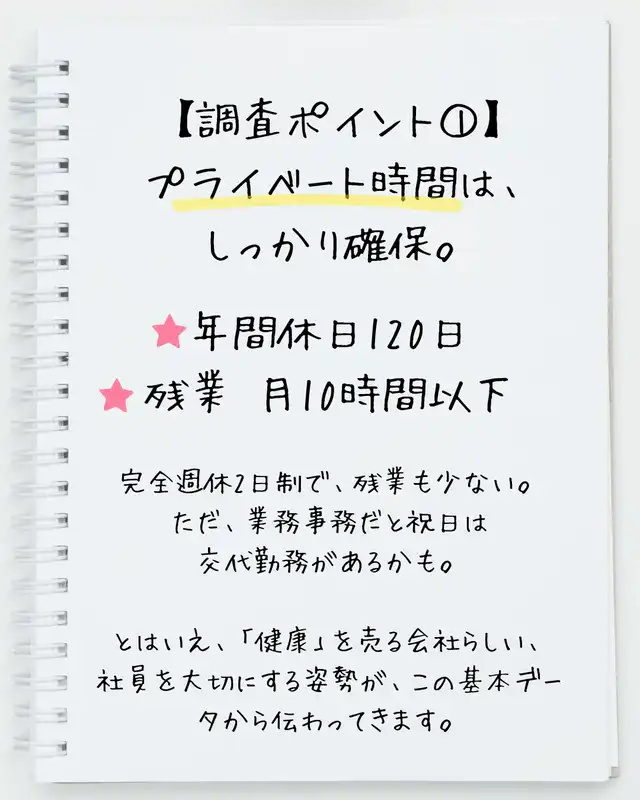 【調査ポイント①】
プライベート時間は、
しっかり確保。
年間休日120日
残業 月10時間以下
完全週休2日制で、残業も少ない。
ただ、業務事務だと祝日は
交代勤務があるかも。
とはいえ、「健康」を売る会社らしい、
社員を大切にする姿勢が、この基本デー
タから伝わってきます。